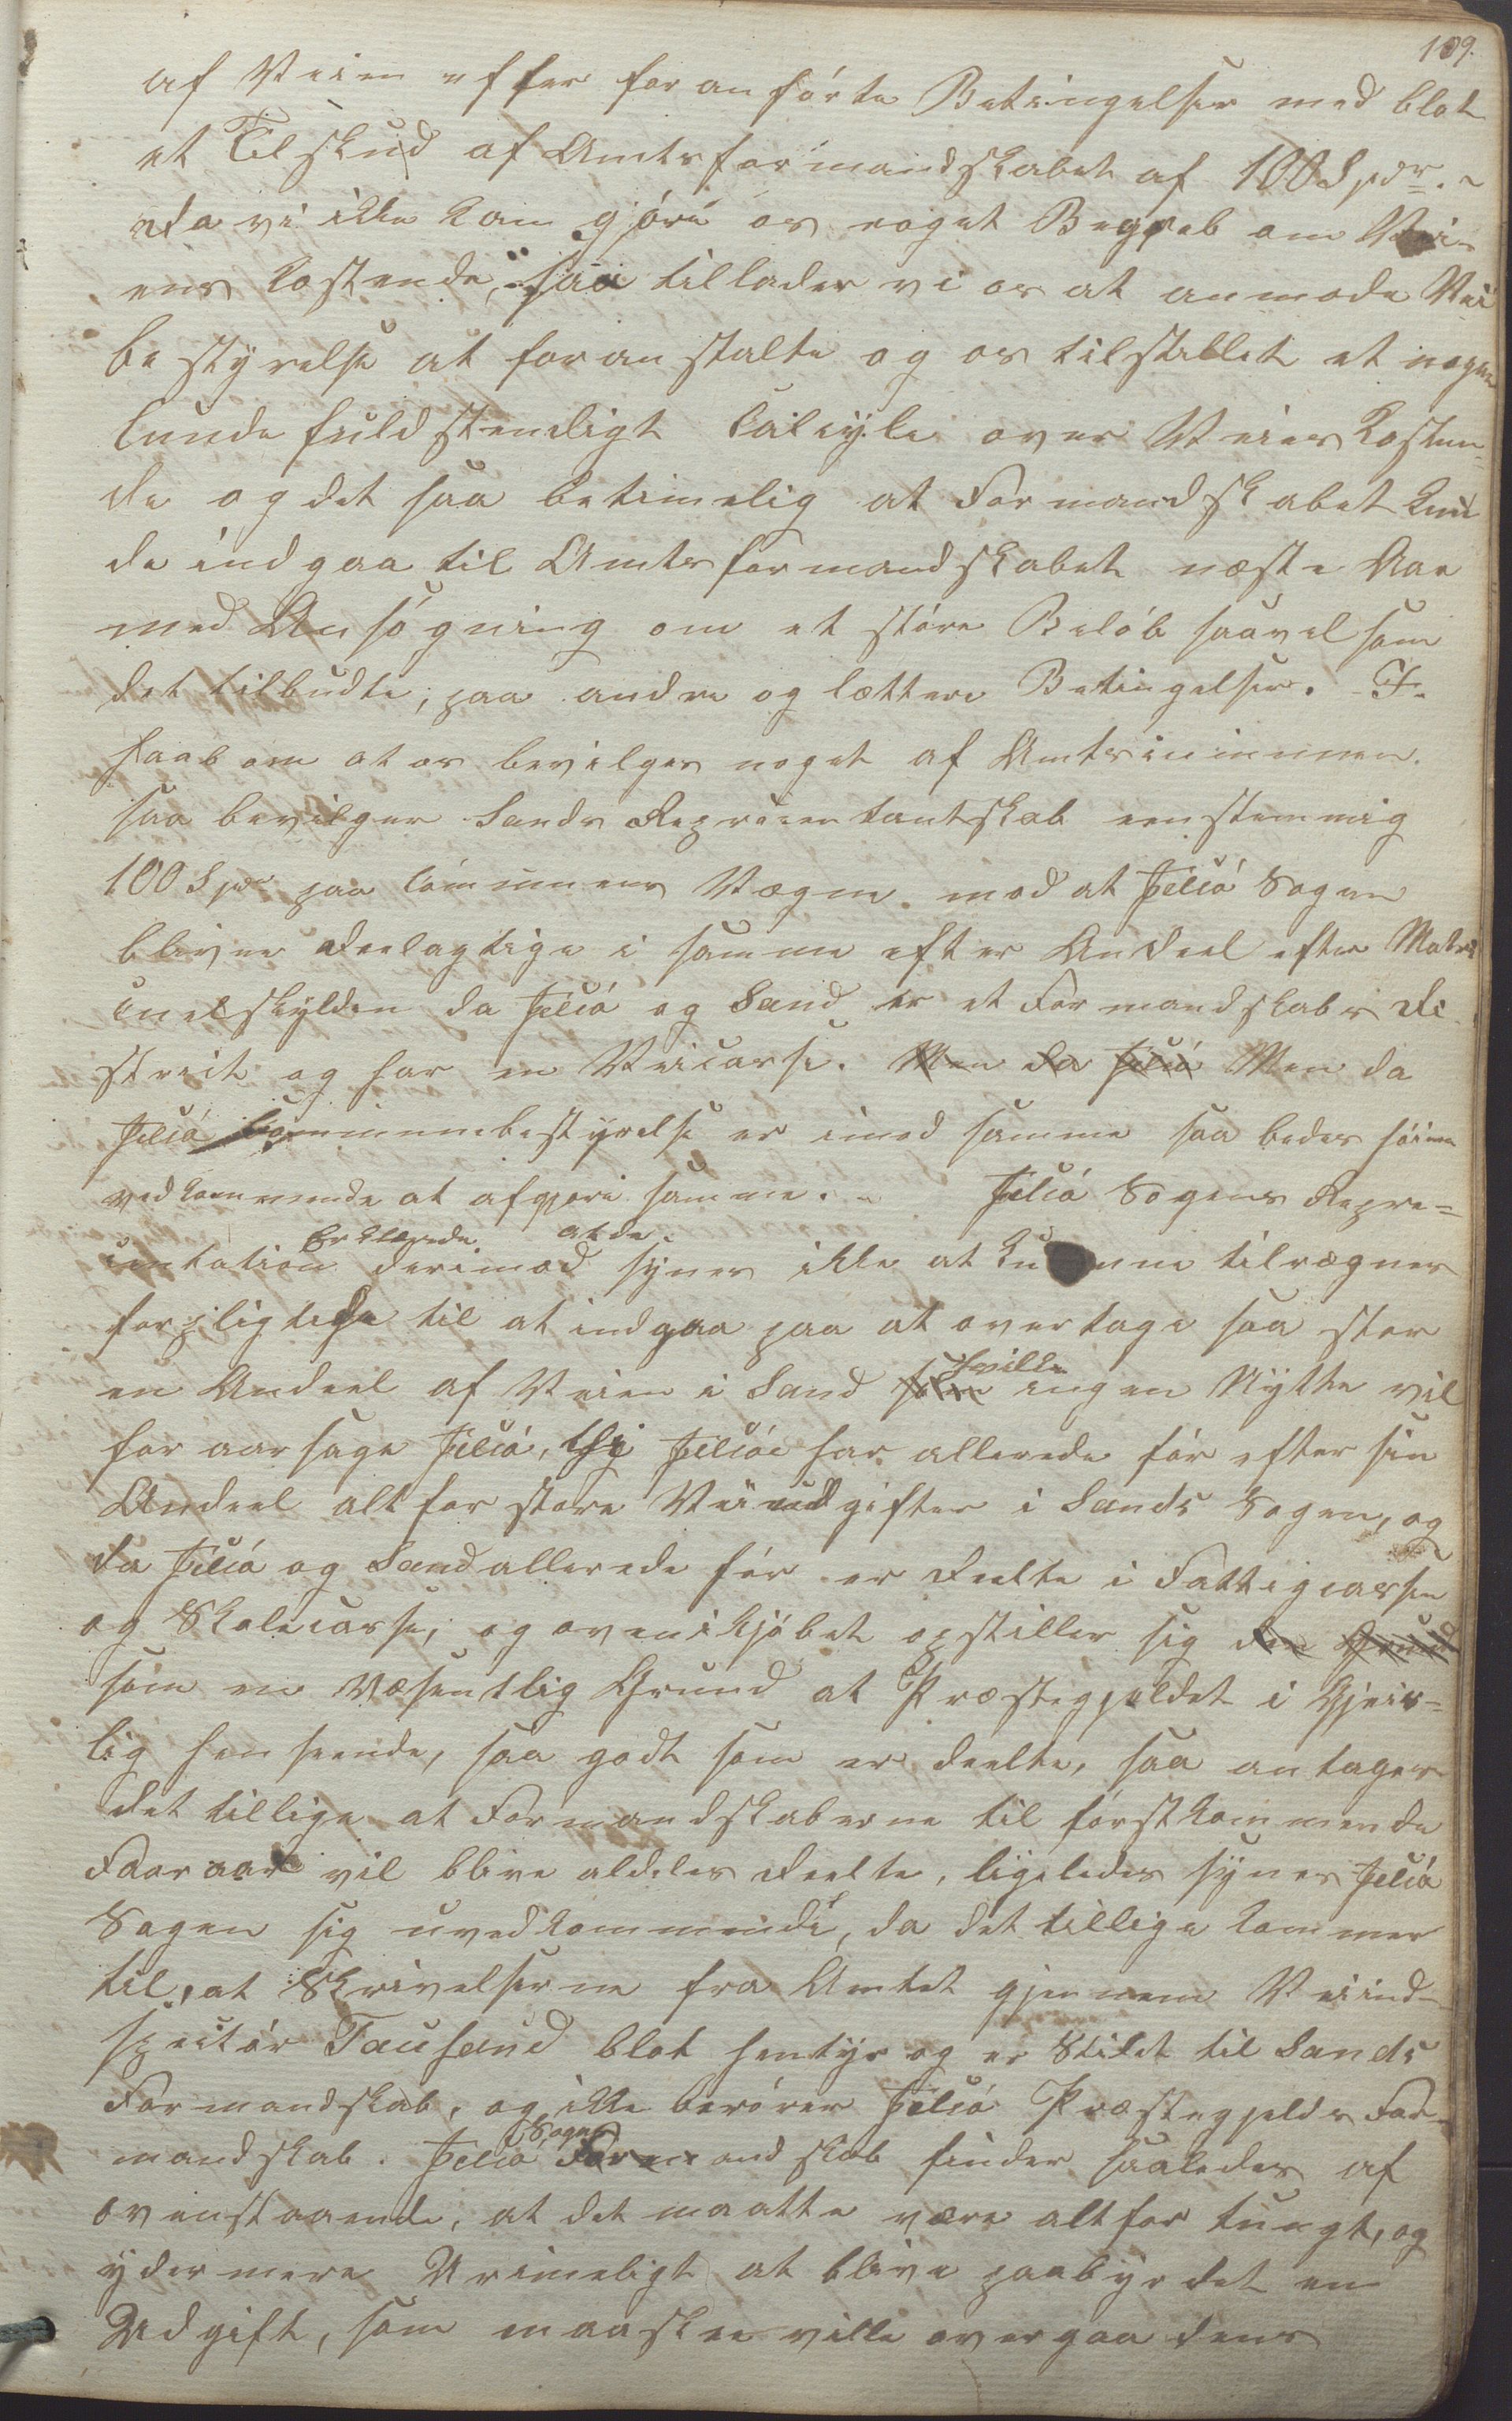 109.
af Veien efter foranførte Betingelser med blot
et Tilskud af Amtsformandskabet af 100 Spdr. -
da vi ikke kan gjøre os noget Begreb om Vei-
ens kostende, saa tillader vi os at anmode Vei
bestyrelse at foranstalte og os tilstillet et nogen
lunde fuldstendigt Calcyle over Veies Kosten-
de og det saa betimelig at Formandskabet kun
de indgaa til Amtsformandskabet næste Aar
med Ansøgning om et støre Beløb saavel som
det tilbudte, paa andre og lættere Betingelser. I
haab om at os bevilges noget af Amtscommunen.
saa bevilger Sands Repræsentantskab eenstemmig
100 Spdr paa Communens Vægne mod at Jelsø Sogn
bliver deelagtige i samme efter Andeel efter Matri
culskylden da Jelsø og Sand er et Formandskabs Di
strict og har en Veicasse. Men da Jelsø Men da
Jelsø Communebestyrelse er imod samme saa bedes høiere
vedkommende at afgjøre samme. - Jelsø Sogens Repre-
sentation Erklærede derimod at de synes ikke at kunne tilregnes
forpligtelse til at indgaa paa at overtage saa stor
en Andeel af Veien i Sand som hville ingen Nytte vil
foraarsage Jelsø, thi Jelsøe har allerede før efter sin
Andeel alt for store Veiudgifter i Sands Sogen, og
da Jelsø og Sand allerede før er deelte i Fattigcassen
og Skolecasse, og ovenikjøbet opstiller sig den Grund
som en væsentlig Grund at Præstegjeldet i Gjeist-
lig henseende, saa godt som er deelte, saa antages
det tillige at Formandskaberne til førstkommende
Foraar vil blive aldeles deelte, ligeledes synes Jelsø
Sogen sig uvedkommende, da det tillige kommer
til, at Skrivelserne fra Amtet gjennem Veiind-
spectør Tausand blot hentyr og er Stilet til Sands
Formandskab, og ikke berører Jelsø Præstegjelds For-
mandskab. Jelsø Sogns Formandskab finder saaledes af
ovenstaaende, at det maatte være altfor tungt, og
ydermere Urimeligt at blive paabyrdet en
Udgift, som maaskee ville overgaa dens